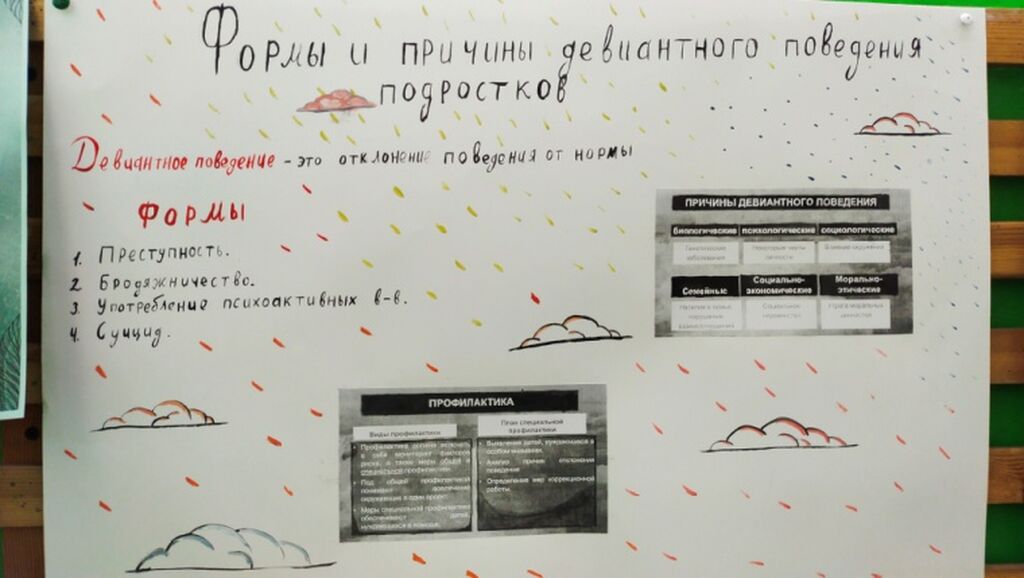 Формы и причины девиантного поведения
подростков
Девиантное поведение - это отклонение поведения от нормы
ФОРМЫ
1. Преступность.
2. Бродяжничество.
3. Употребление психоактивных в-в.
4. Суицид.
ПРИЧИНЫ ДЕВИАНТНОГО ПОВЕДЕНИЯ
биологические психологические социологические
Генетические заболевания
Некоторые черты личность
Влияние окружения
Семейные
Социально-экономические
Морально-этические
Социальное неравенство
ценностей
ПРОФИЛАКТИКА
Виды профилактики
План специальной
профилактики
• Профилактика должна включать
в себя мониторинг факторов
риска, а также меры общей и
специальной профилактики.
• Под общей профилактикой
понимают вовлечение
окружающих в один проект.
• Меры специальной профилактики
обеспечивают детей,
нуждающихся в помощи.
• Выявление детей, нуждающихся в
особом внимании.
• Анализ причин отклонения
поведения
• Определение мер коррекционной
работы.